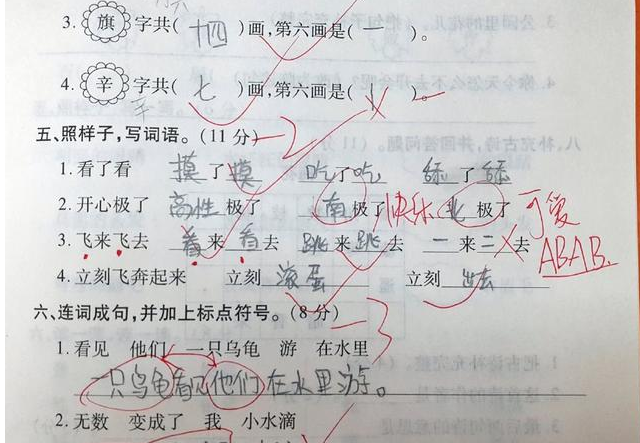 3. 旗 字共( 十四 )画,第六画是( 一 )。
4. 辛 字共( 七 )画,第六画是( 丨 )
五、照样子,写词语。(11 分) —2
1. 看了看 摸了摸 吃了吃 舔了舔
2. 开心极了 高性极了 南极了 快乐 北极了 可爱
3. 飞来飞去 着来看去 跳来跳去 一来二去 ABAB.
4. 立刻飞奔起来 立刻 滚蛋 立刻 出去
六、连词成句,并加上标点符号。(8 分) —3
1. 看见 他们 一只乌龟 游 在水里
一只乌龟看见他们在水里游。
2. 无数 变成了 我 小水滴